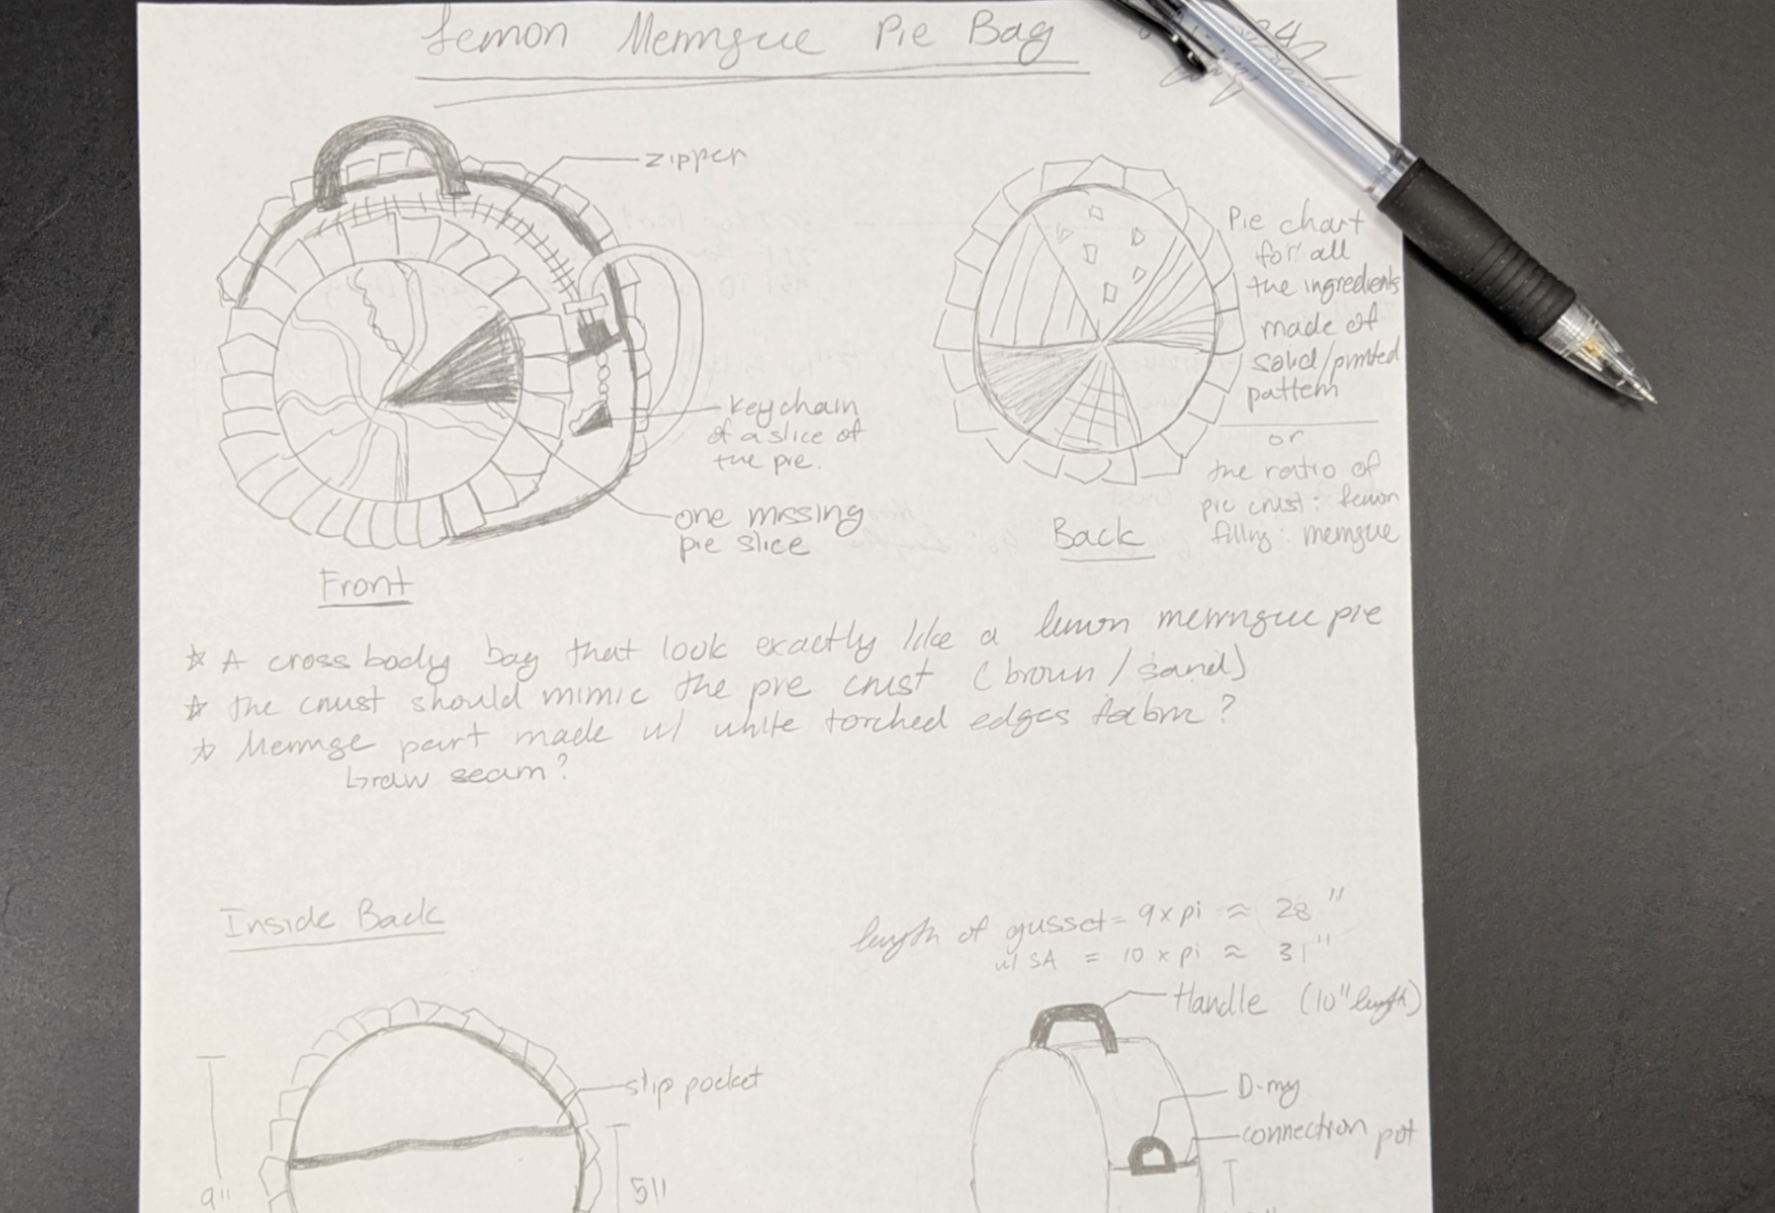 Lemon Meringue Pie Bag
zipper
keychain
of a slice of
the pie.
one missing
pie slice
Front
Pie chart
for all
the ingredients
made of
solid/printed
pattern
or
the ratio of
pie crust : lemon
filling : meringue
Back
☆ A crossbody bag that look exactly like a lemon meringue pie
☆ the crust should mimic the pie crust (brown / sand)
☆ Meringe part made w/ white torched edges fabric?
seam?
Inside Back
slip pocket
9"
5"
length of gusset = 9 x pi ≈ 28"
w/ SA = 10 x pi ≈ 31"
Handle (10" length)
D-ring
connection